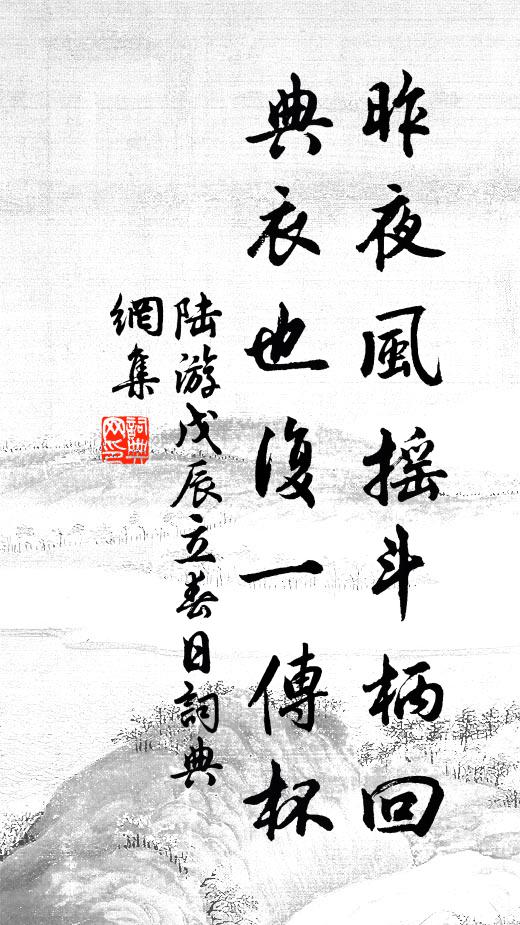 昨夜風摇斗柄回
典衣也復一傳杯
陆游戊辰立春日詞典
網集
詞典
网印